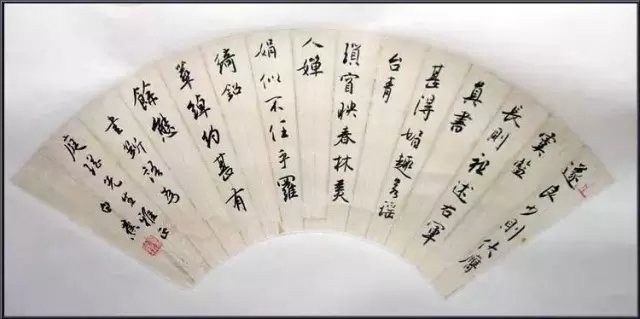 遂良少則伏膺
虞監
長則祖述右軍
真書
甚得媚趣若瑤
台青
瑣窅映春林美
人嬋
娟似不任乎羅
綺鉛
華綽約甚有
餘態
書斷語為
庭先生雅正
白蕉